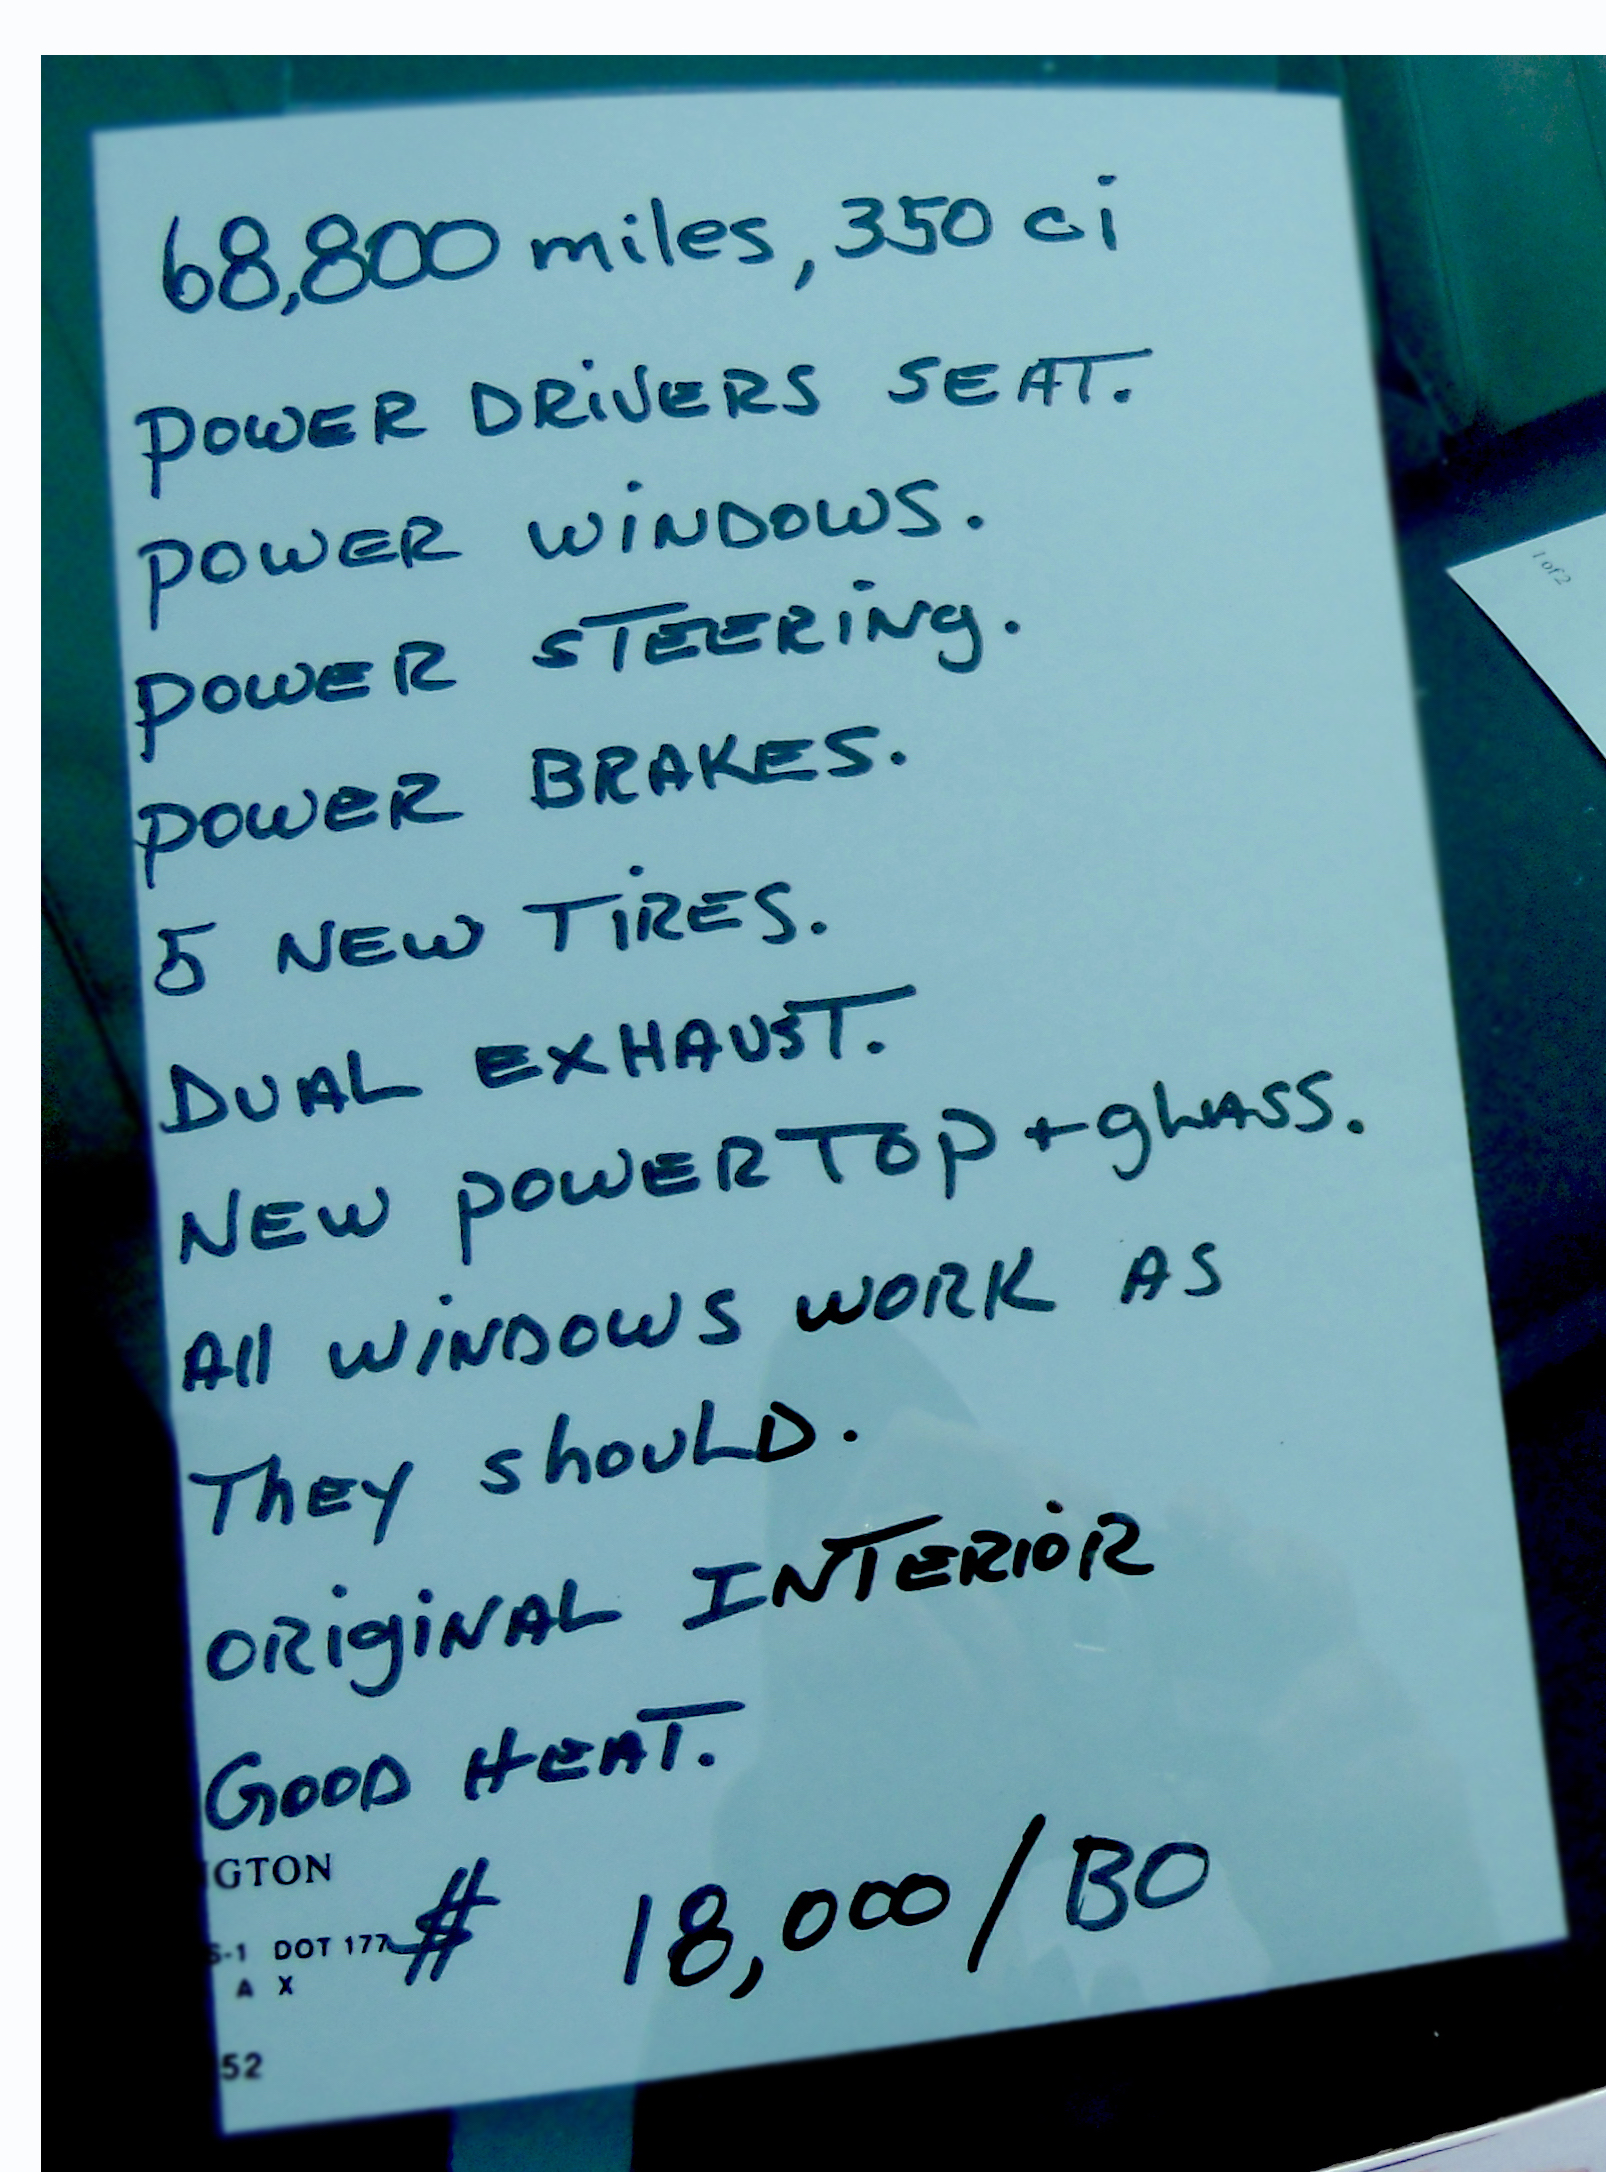 68,800 miles, 350 ci
POWER DRIVERS SEAT.
POWER WINDOWS.
POWER STEERING.
POWER BRAKES.
5 NEW TIRES.
DUAL EXHAUST.
NEW POWER TOP + gLASS.
All WINDOWS WORK AS
They shouLD.
ORIgINAL INTERIOR
GOOD HEAT.
$ 18,000/BO
GTON
S-1 DOT 177
A X
52
1 of 2